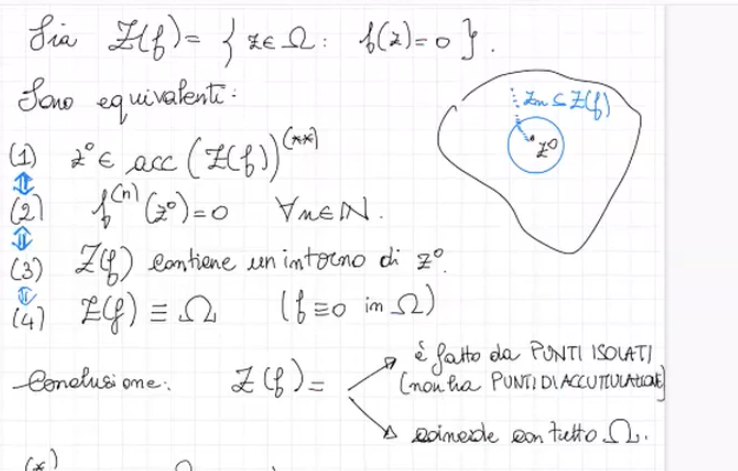 Sia Z(f) = { z∈Ω : f(z)=0 }.
Sono equivalenti:
(1) z⁰ ∈ acc (Z(f))^(**)
⇕
(2) f^(n)(z⁰)=0 ∀n∈ℕ.
⇕
(3) Z(f) contiene un intorno di z⁰.
⇕
(4) Z(f) ≡ Ω (f≡0 in Ω)
zn ⊆ Z(f)
z⁰
Conclusione: Z(f) =
è fatto da PUNTI ISOLATI
(non ha PUNTI DI ACCUMULAZIONE)
coincide con tutto Ω.
(*)